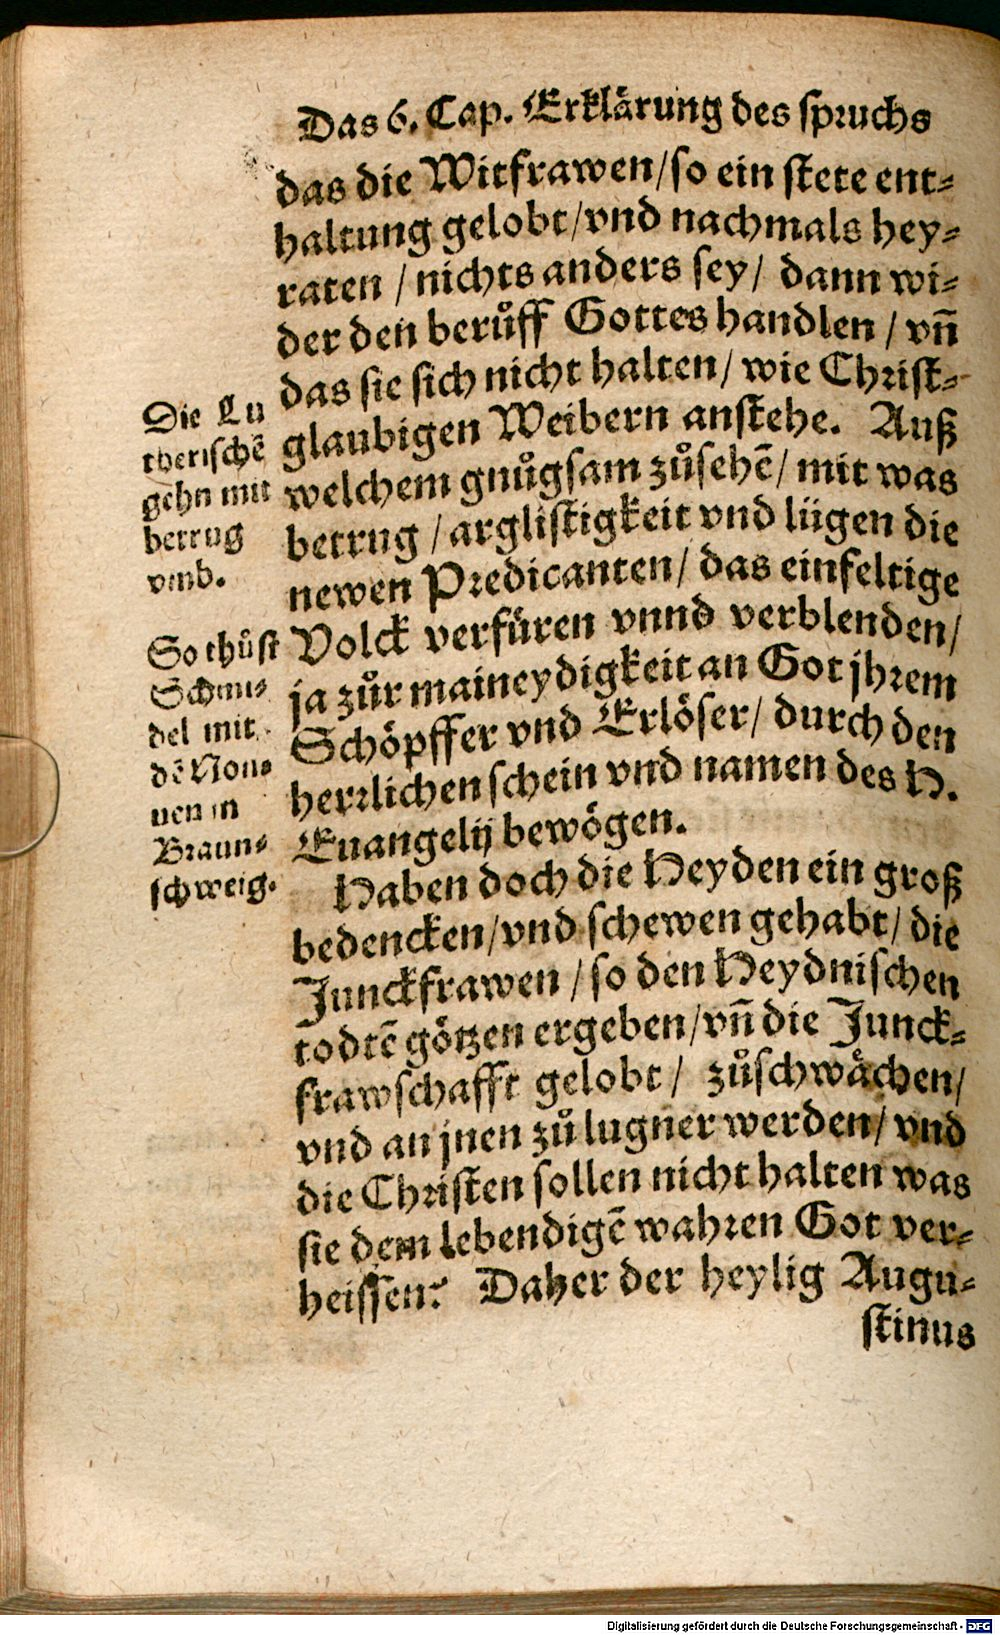 Das 6. Cap. Erklärung des spruchs
das die Witfrawen/so ein stete ent⸗
haltung gelobt/vnd nachmals hey⸗
raten / nichts anders sey/ dann wi⸗
der den berůff Gottes handlen / vñ
das sie sich nicht halten/ wie Christ⸗
glaubigen Weibern anstehe. Auß
welchem gnůgsam zůsehẽ/ mit was
betrug / arglistigkeit vnd lügen die
newen Predicanten/ das einfeltige
Volck verfüren vnnd verblenden/
ja zůr maineydigkeit an Got jhrem
Schöpffer vnd Erlöser/ durch den
herrlichen schein vnd namen des H.
Euangelij bewögen.
Die Lu
therischẽ
gehn mit
betrug
vmb.
So thůst
Schmi⸗
del mit
dẽ Non⸗
nen in
Braun⸗
schweig.
Haben doch die Heyden ein groß
bedencken/vnd schewen gehabt/ die
Junckfrawen / so den Heydnischen
todtẽ götzen ergeben/vñ die Junck⸗
frawschafft gelobt/ zůschwächen/
vnd an jnen zů lugner werden/ vnd
die Christen sollen nicht halten was
sie dem lebendigẽ wahren Got ver⸗
heissen? Daher der heylig Augu⸗
stinus
Digitalisierung gefördert durch die Deutsche Forschungsgemeinschaft - DFG